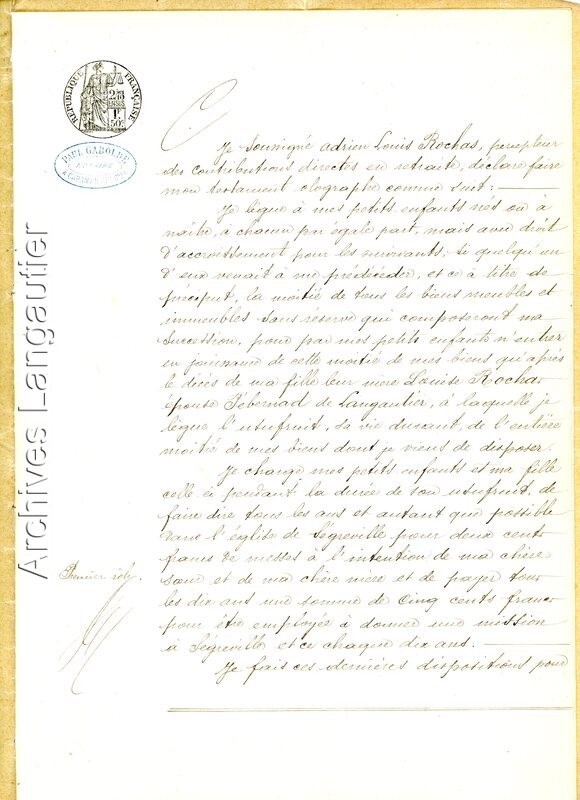 RÉPUBLIQUE FRANÇAISE
50c
PAUL GABOLDE
NOTAIRE
A CARAMAN
Je soussigné adrien Louis Rochas, percepteur
des contributions directes en retraite, déclare faire
mon testament olographe comme suit:
Je lègue à mes petits enfants nés ou à
naître, à chacun par égale part, mais avec droit
d'accroissement pour les survivants, si quelqu'un
d'eux venait à me prédécéder, et ce à titre de
préciput, la moitié de tous les biens meubles et
immeubles sans réserve qui composeront ma
succession, pour par mes petits enfants n'entrer
en jouissance de cette moitié de mes biens qu'après
le décès de ma fille leur mère Louise Rochas
épouse Pébernad de Langautier, à laquelle je
lègue l'usufruit, sa vie durant, de l'entière
moitié de mes biens dont je viens de disposer.
Je charge mes petits enfants et ma fille
celle ci pendant la durée de son usufruit, de
faire dire tous les ans et autant que possible
dans l'église de Ségreville pour deux cents
francs de messes à l'intention de ma chère
sœur et de ma chère mère et de payer tous
les dix ans une somme de Cinq cents francs
pour être employée à donner une mission
à Ségreville et ce chaque dix ans.
Je fais ces dernières dispositions pour
Premier rôle.
Archives Langautier